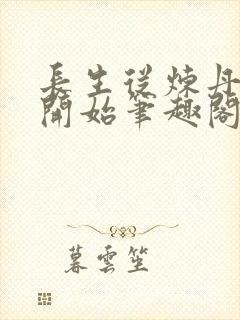 長生從煉丹
開始筆趣閣
暮雲笙